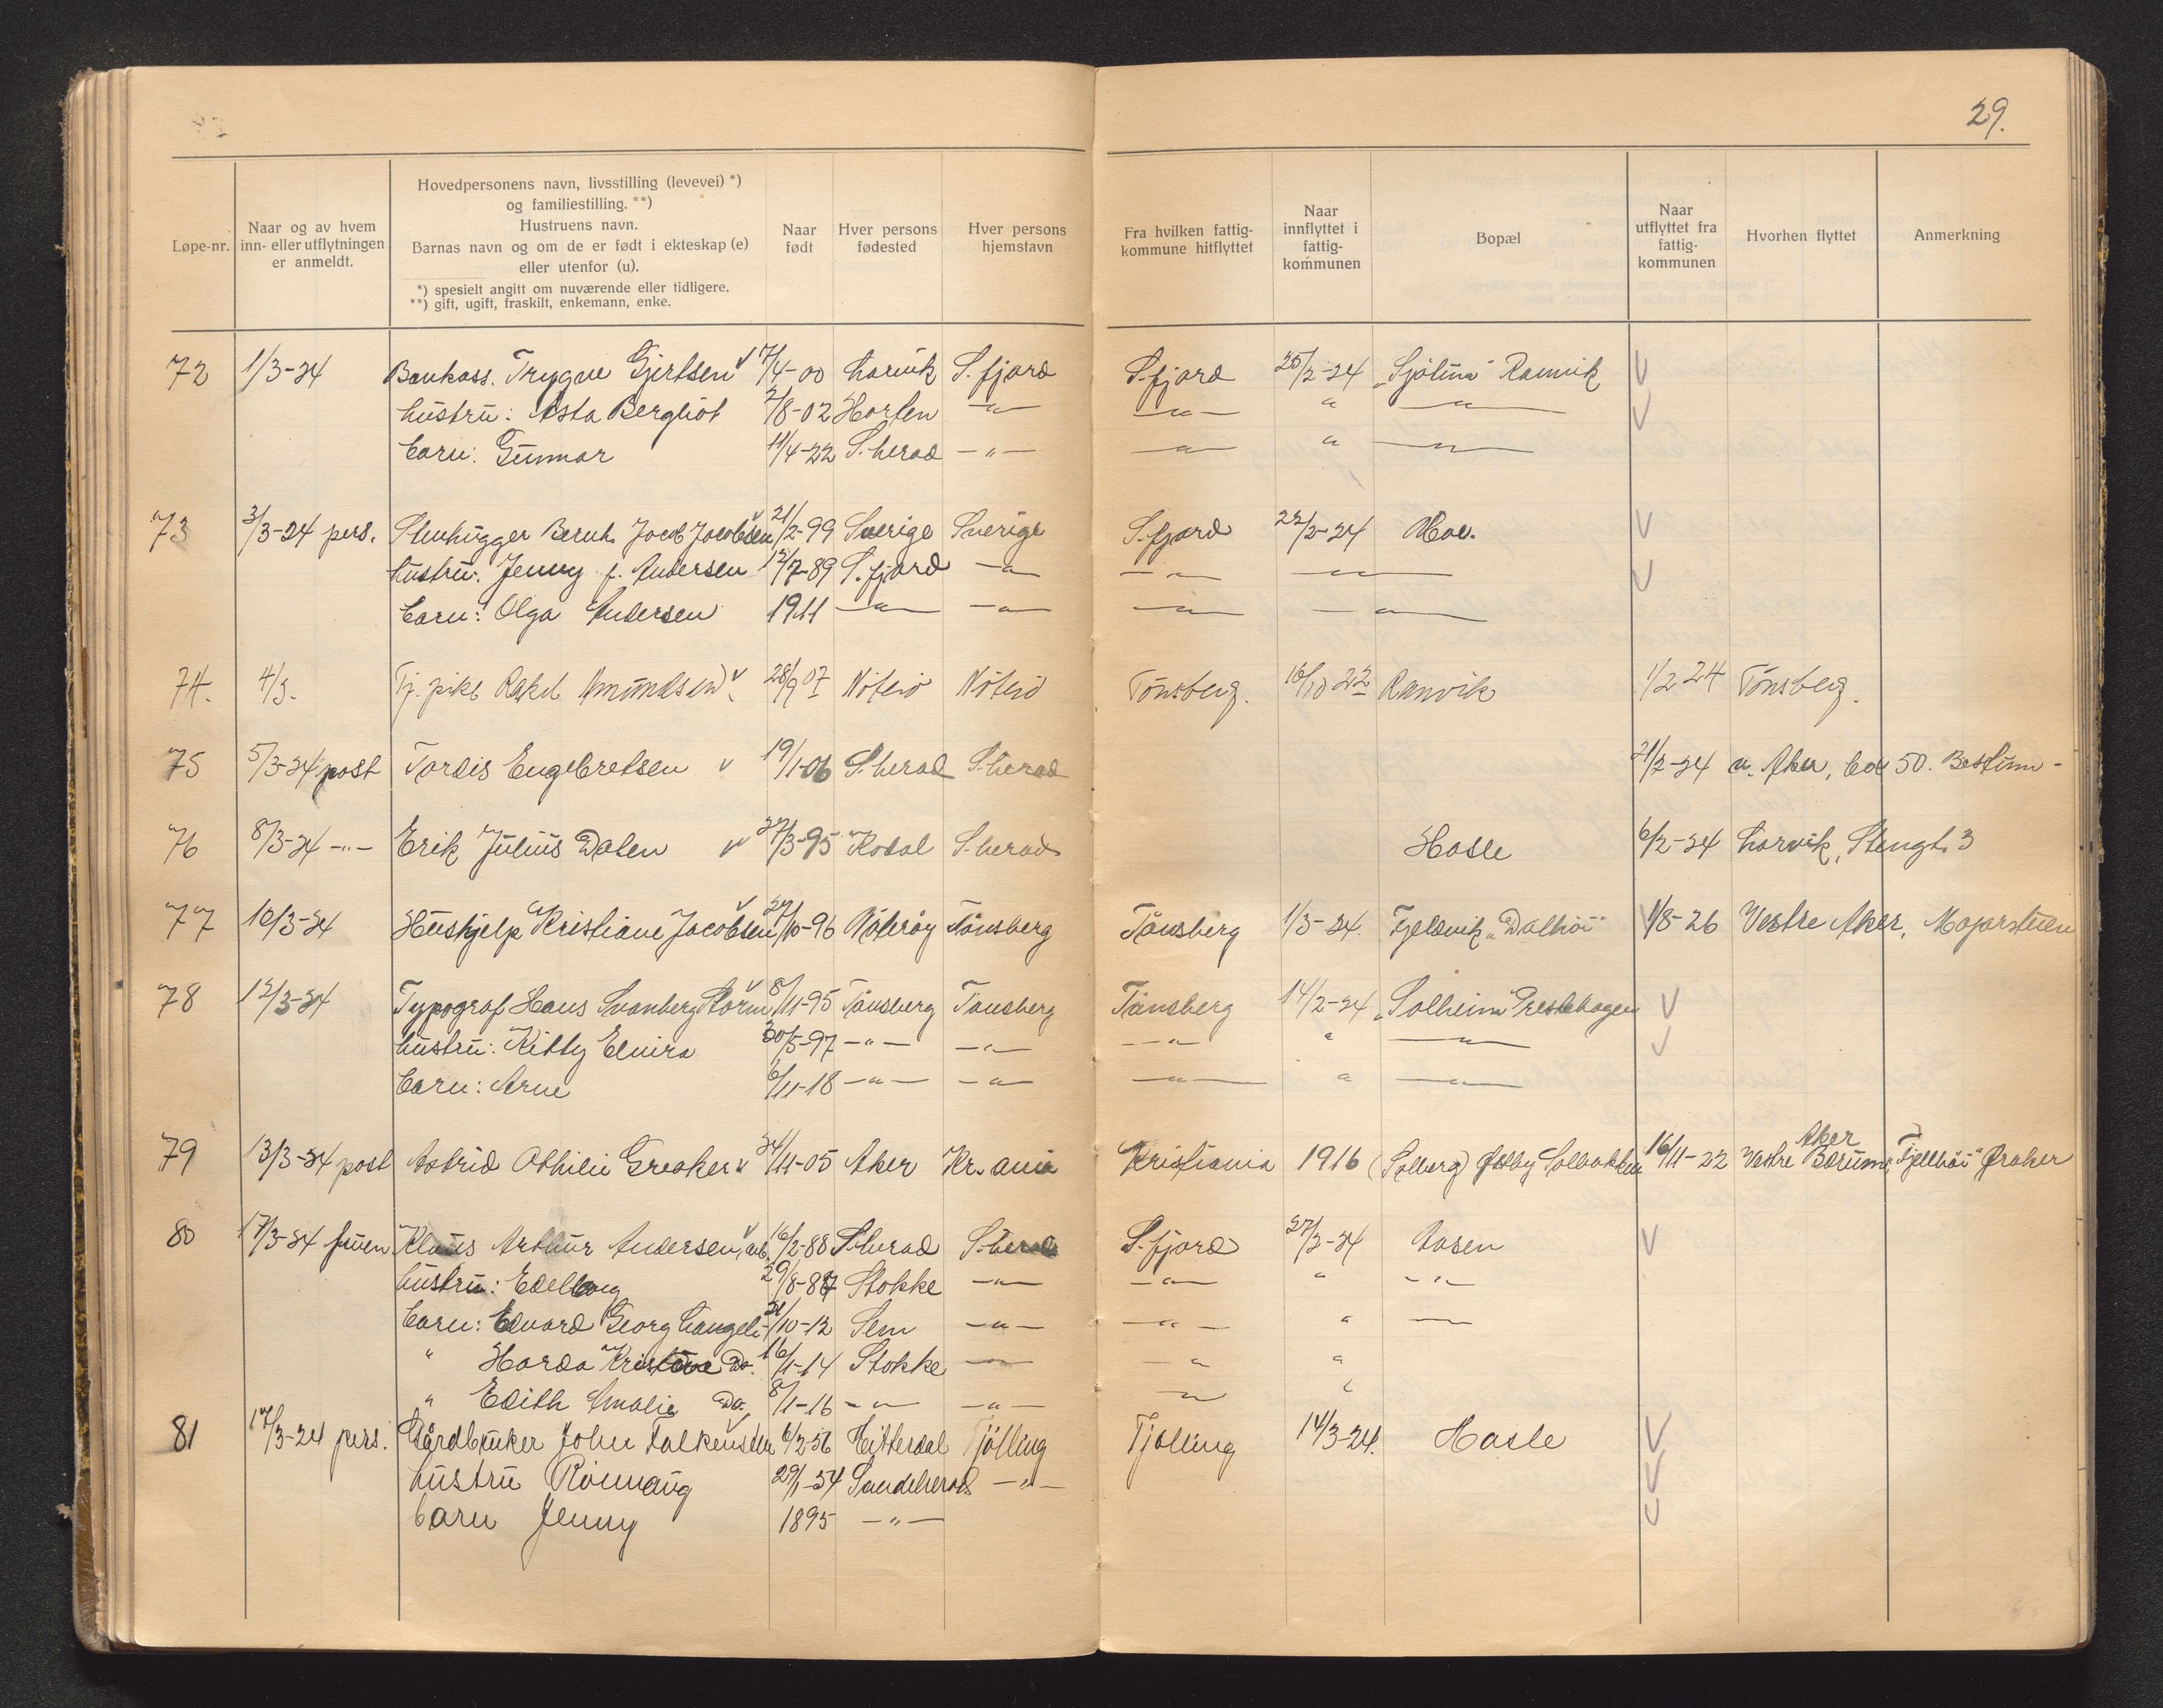 29.
Løpe-nr.
Naar og av hvem inn- eller utflytningen er anmeldt.
Hovedpersonens navn, livsstilling (levevei) *) og familiestilling. **)
Hustruens navn.
Barnas navn og om de er født i ekteskap (e) eller utenfor (u).
*) spesielt angitt om nuværende eller tidligere.
**) gift, ugift, fraskilt, enkemann, enke.
Naar født
Hver persons fødested
Hver persons hjemstavn
Fra hvilken fattig-kommune hitflyttet
Naar innflyttet i fattig-kommunen
Bopæl
Naar utflyttet fra fattig-kommunen
Hvorhen flyttet
Anmerkning
72 1/3-24 Bankass. Trygve Gjertsen 7/4-00 Larvik S.fjord S.fjord 25/2-24 „Sjølund“ Ranvik
hustru: Asta Bergliot 7/8-02 Horten -"- -"- " -"-
barn: Gunnar 11/4-22 S.herad -"- -"- " -"-
73 3/3-24 pers. Stenhugger Bernh. Jacob Jacobsen 21/2-99 Sverige Sverige S.fjord 22/2-24 Mo.
hustru: Jenny f. Andersen 12/7-89 S.fjord -"- -"- -"-
barn: Olga Andersen 1911 -"- -"- -"- -"-
74. 4/3. Tj. pike Rakel Amundsen 28/9 07 Nøterø Nøterø Tønsberg. 16/10 22 Ranvik 1/2 24 Tønsberg.
75 5/3-24 post Tordis Engebretsen 19/1-06 S.herad S.herad 21/2-24 v. Aker, box 50. Bestum-
76 8/3-24 -"- Erik Julius Dalen 27/3-95 Kodal S.herad Hasle 6/2-24 Larvik, Stengt. 3
77 10/3-24 Hushjelp Kristiane Jacobsen 27/10-96 Nøterøy Tønsberg Tønsberg 1/3-24. Fjeldvik „Dalhøi“ 1/8-26 Vestre Aker, Majorstuen
78 12/3-24 Typograf Hans Svanberg Storm 8/11-95 Tønsberg Tønsberg Tønsberg 14/2-24 „Solheim“ Prestehagen
hustru: Kitty Elvira 30/5-97 -"- -"- -"- " -"-
barn: Arne 6/11-18 -"- -"- -"- " -"-
79 13/3-24 post Astrid Othilie Greaker 24/11-05 Aker Kr.ania Kristiania 1916 (Solberg) Østby Solbakken 16/11-22 Vestre Aker Bærum, „Fjellhøi“ Øraker
80 17/3-24 fruen Klaus Arthur Andersen, arb. 16/2-88 S.herad S.herad S.fjord 27/2-24 Aasen
hustru: Edelborg 29/8-87 Stokke -"- -"- " -"-
barn: Edvard Georg Langeb- 21/10-12 Sem -"- -"- " -"-
" Harda Kristine Do. 16/1-14 Stokke -"- -"- "
" Edith Amalie Do. 8/1-16 -"- -"- -"- "
81 17/3-24 pers. Gårdbruker John Falkensten 6/2-56 Hitterdal Tjølling Tjølling 14/3-24. Hasle
hustru Rønnaug 29/1-54 Sandeherad -"-
barn Jenny 1895 -"-